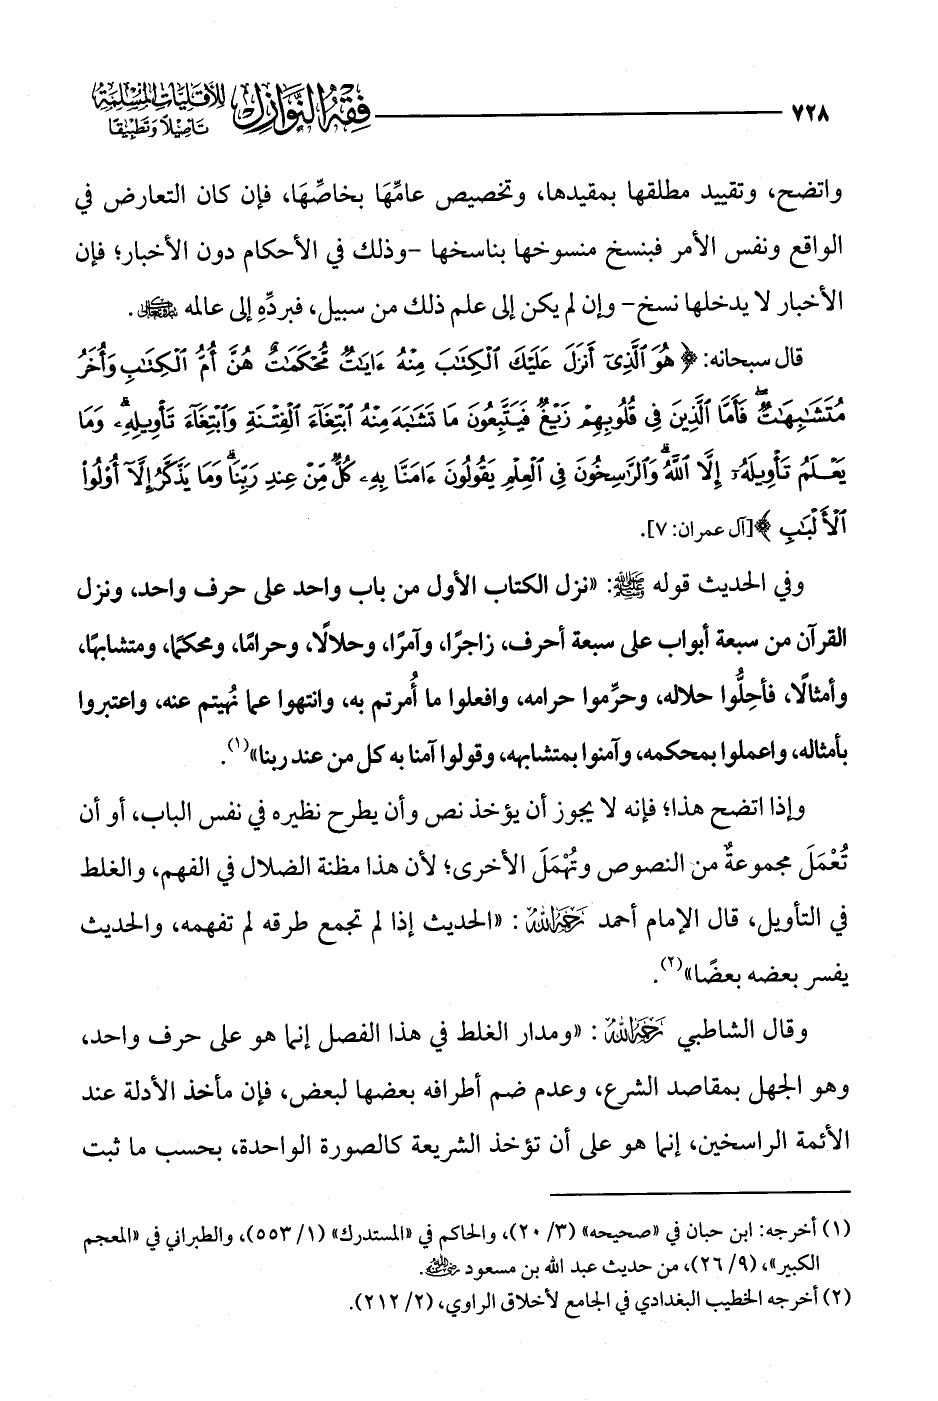 ٧٢٨ فقه النوازل للأقليات المسلمة
تأصيلًا وتطبيقًا
واتضح، وتقييد مطلقها بمقيدها، وتخصيص عامِّهَا بخاصِّهَا، فإن كان التعارض في
الواقع ونفس الأمر فبنسخ منسوخها بناسخها -وذلك في الأحكام دون الأخبار؛ فإن
الأخبار لا يدخلها نسخ- وإن لم يكن إلى علم ذلك من سبيل، فبردِّهِ إلى عالمه .
قال سبحانه: ﴿ هُوَ ٱلَّذِىٓ أَنزَلَ عَلَيْكَ ٱلْكِتَٰبَ مِنْهُ ءَايَٰتٌ مُّحْكَمَٰتٌ هُنَّ أُمُّ ٱلْكِتَٰبِ وَأُخَرُ
مُتَشَٰبِهَٰتٌ ۖ فَأَمَّا ٱلَّذِينَ فِى قُلُوبِهِمْ زَيْغٌ فَيَتَّبِعُونَ مَا تَشَٰبَهَ مِنْهُ ٱبْتِغَآءَ ٱلْفِتْنَةِ وَٱبْتِغَآءَ تَأْوِيلِهِۦ ۗ وَمَا
يَعْلَمُ تَأْوِيلَهُۥٓ إِلَّا ٱللَّهُ ۗ وَٱلرَّٰسِخُونَ فِى ٱلْعِلْمِ يَقُولُونَ ءَامَنَّا بِهِۦ كُلٌّ مِّنْ عِندِ رَبِّنَا ۗ وَمَا يَذَّكَّرُ إِلَّآ أُوْلُواْ
ٱلْأَلْبَٰبِ ﴾ [آل عمران: ٧].
وفي الحديث قوله ﷺ: «نزل الكتاب الأول من باب واحد على حرف واحد، ونزل
القرآن من سبعة أبواب على سبعة أحرف، زاجرًا، وآمرًا، وحلالًا، وحرامًا، ومحكمًا، ومتشابهًا،
وأمثالًا، فأحِلُّوا حلاله، وحرِّموا حرامه، وافعلوا ما أُمرتم به، وانتهوا عما نُهيتم عنه، واعتبروا
بأمثاله، واعملوا بمحكمه، وآمنوا بمتشابهه، وقولوا آمنا به كل من عند ربنا»(١).
وإذا اتضح هذا؛ فإنه لا يجوز أن يؤخذ نص وأن يطرح نظيره في نفس الباب، أو أن
تُعْمَلَ مجموعةٌ من النصوص وتُهْمَلَ الأخرى؛ لأن هذا مظنة الضلال في الفهم، والغلط
في التأويل، قال الإمام أحمد رَحِمَهُ ٱللَّهُ : «الحديث إذا لم تجمع طرقه لم تفهمه، والحديث
يفسر بعضه بعضًا»(٢).
وقال الشاطبي رَحِمَهُ ٱللَّهُ : «ومدار الغلط في هذا الفصل إنما هو على حرف واحد،
وهو الجهل بمقاصد الشرع، وعدم ضم أطرافه بعضها لبعض، فإن مأخذ الأدلة عند
الأئمة الراسخين، إنما هو على أن تؤخذ الشريعة كالصورة الواحدة، بحسب ما ثبت
(١) أخرجه: ابن حبان في «صحيحه» (٣/ ٢٠)، والحاكم في «المستدرك» (١/ ٥٥٣)، والطبراني في «المعجم
الكبير»، (٩/ ٢٦)، من حديث عبد الله بن مسعود رَضِيَ ٱللَّهُ عَنْهُ.
(٢) أخرجه الخطيب البغدادي في الجامع لأخلاق الراوي، (٢/ ٢١٢).